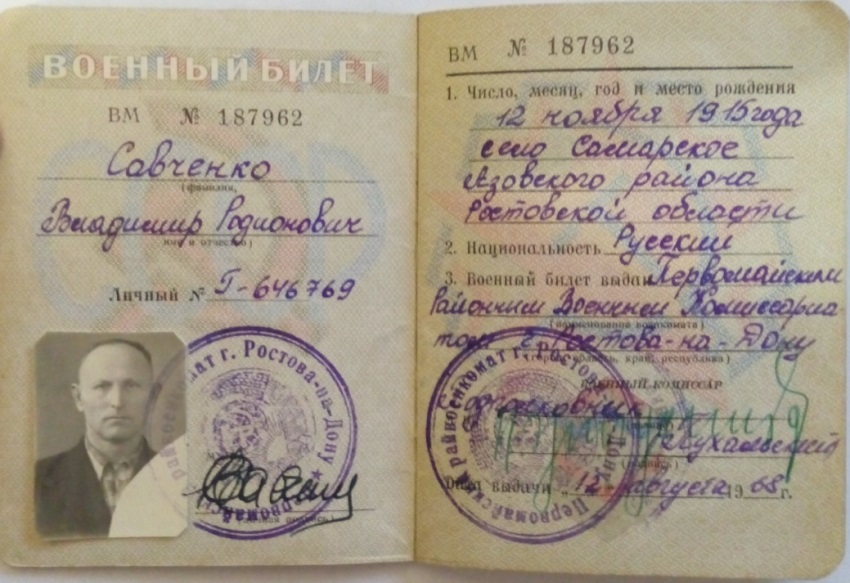 ВОЕННЫЙ БИЛЕТ
ВМ № 187962
Савченко
(фамилия,
Владимир Родионович
имя и отчество)
Личный № Г-646769
мат г. Ростова-на-Дону
ВМ № 187962
1. Число, месяц, год и место рождения
12 ноября 1915 года
село Самарское
Азовского района
Ростовской области
2. Национальность Русский
3. Военный билет выдан Первомайским
Районным Военным Комиссариа-
(наименование военкомата)
том г. Ростова-на-Дону
(город, область, край, республика)
ВОЕННЫЙ КОМИССАР
Первомайский Райвоенкомат г. Росто
Дата выдачи „12" августа 1968 г.